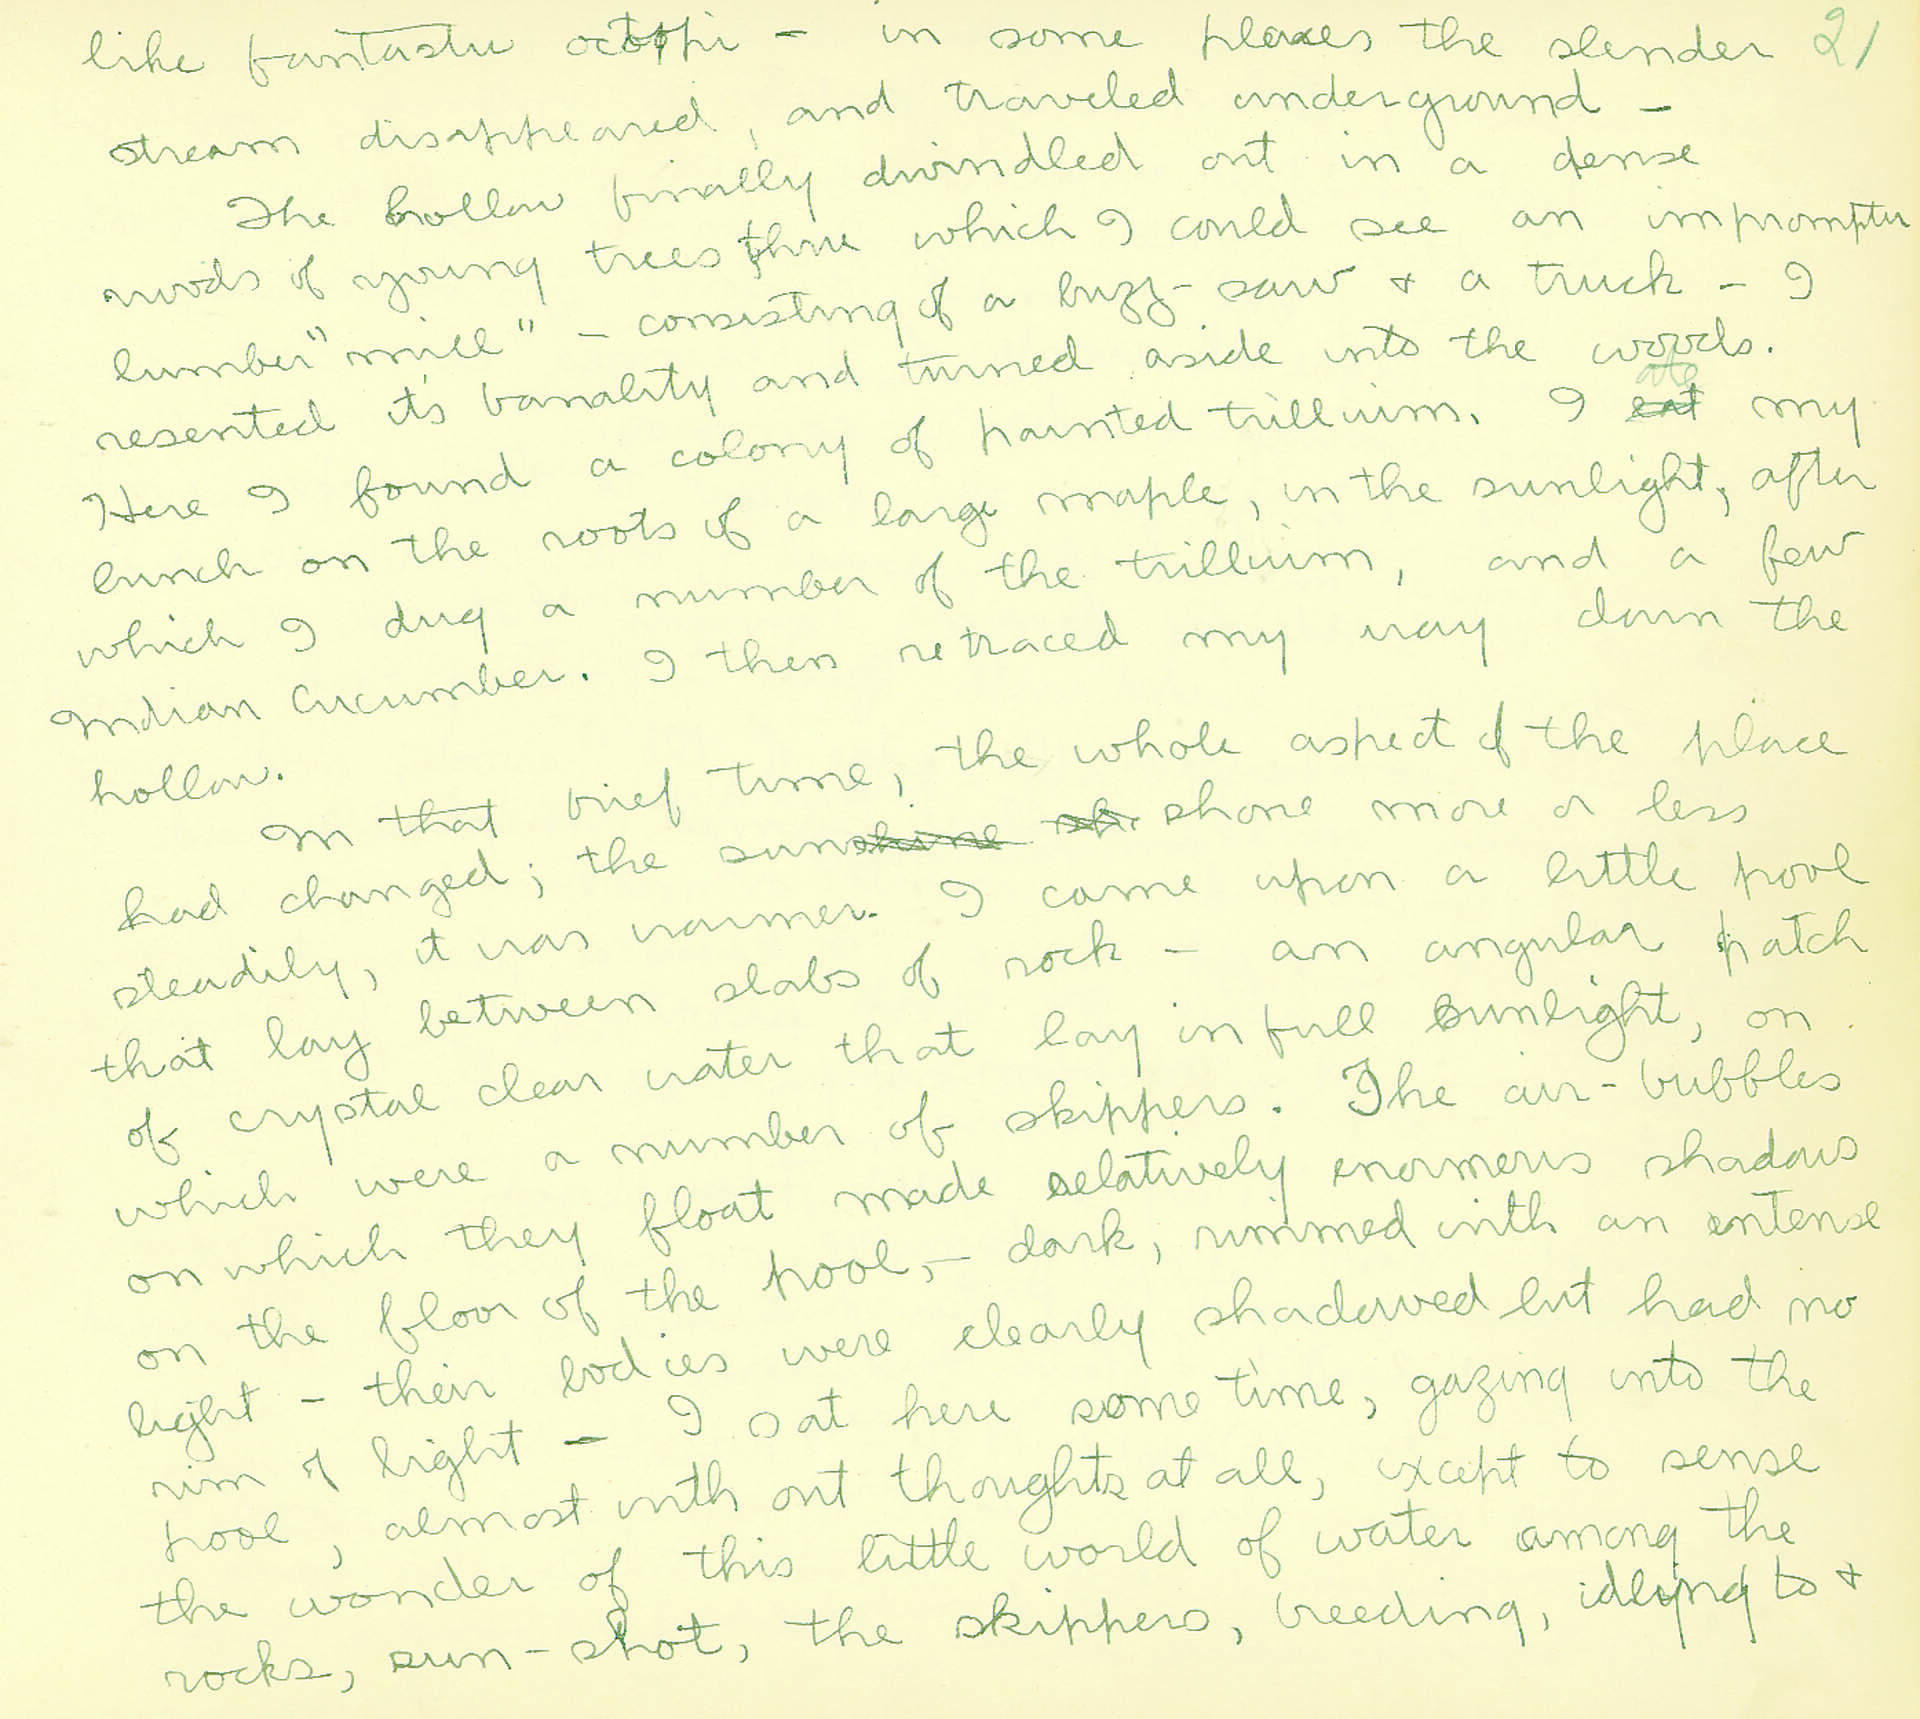 like fantastic octopi - in some places the slender 21
stream disappeared, and traveled underground -
The hollow finally dwindled out in a dense
woods of young trees thru which I could see an impromptu
lumber "mill" - consisting of a buzz-saw + a truck - I
resented it's banality and turned aside into the woods.
Here I found a colony of painted trillium. I eat ate my
lunch on the roots of a large maple, in the sunlight, after
which I dug a number of the trillium, and a few
Indian Cucumber. I then retraced my way down the
hollow.
In that brief time, the whole aspect of the place
had changed; the sunshine sh shone more or less
steadily, it was warmer. I came upon a little pool
that lay between slabs of rock - an angular patch
of crystal clear water that lay in full sunlight, on
which were a number of skippers. The air-bubbles
on which they float made relatively enormous shadows
on the floor of the pool, - dark, rimmed with an intense
light - their bodies were clearly shadowed but had no
rim of light - I sat here some time, gazing into the
pool, almost with out thoughts at all, except to sense
the wonder of this little world of water among the
rocks, sun-shot, the skippers, breeding, idlying to +